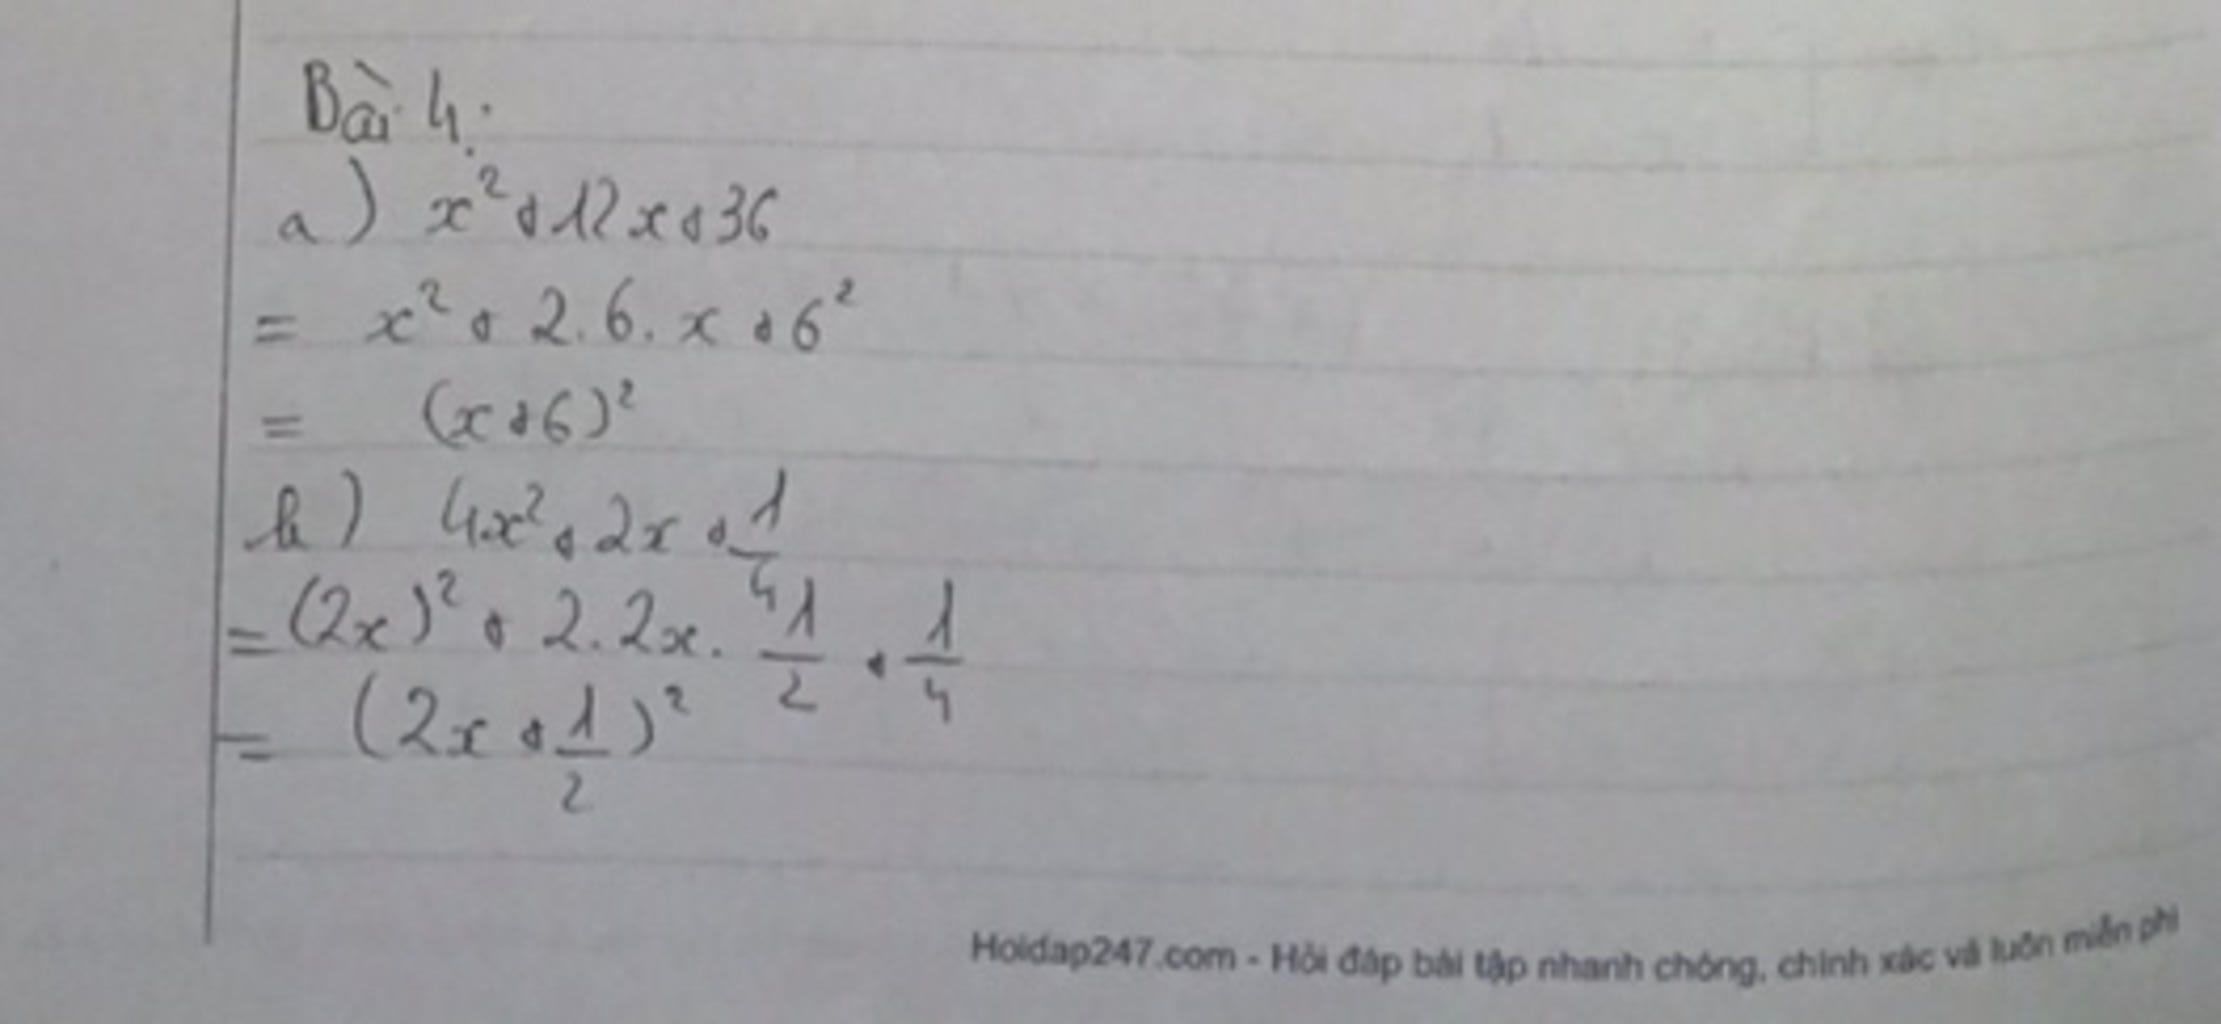 Bài 4:
a) x² + 12x + 36
= x² + 2.6.x + 6²
= (x + 6)²
b) 4x² + 2x + 1/4
= (2x)² + 2.2x.1/2 + 1/4
= (2x + 1/2)²
Hoidap247.com - Hỏi đáp bài tập nhanh chóng, chính xác và luôn miễn phí